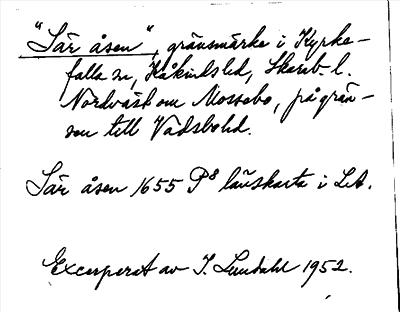 "Sär åsen", gränsmärke i Kyrke-
falla sn, Kåkinds hd, Skarab. l.
Nordväst om Mossebo, på grän-
sen till Vadsbo hd.
Sär åsen 1655 P8 länskarta i LA.
Excerperat av I. Lundahl 1952.